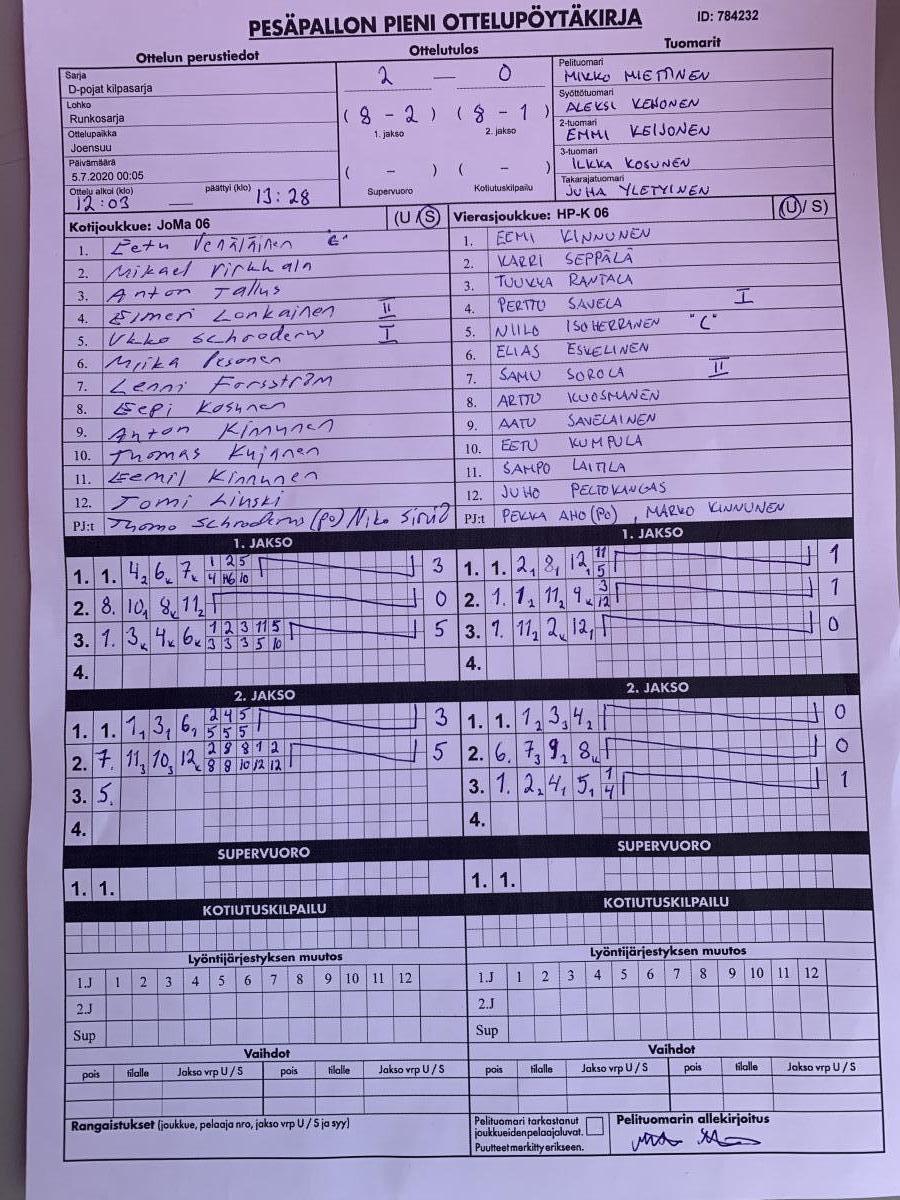 PESÄPALLON PIENI OTTELUPÖYTÄKIRJA ID: 784232
Ottelun perustiedot Ottelutulos Tuomarit
Sarja
D-pojat kilpasarja
Lohko
Runkosarja
Ottelupaikka
Joensuu
Päivämäärä
5.7.2020 00:05
Ottelu alkoi (klo) päättyi (klo)
12:03 — 13:28
2 — 0
(8 - 2) (8 - 1)
1. jakso 2. jakso
( - ) ( - )
Supervuoro Kotiutuskilpailu
Pelituomari
MIKKO MIETTINEN
Syöttötuomari
ALEKSI KEHONEN
2-tuomari
EMMI KEIJONEN
3-tuomari
ILKKA KOSUNEN
Takarajatuomari
JUHA YLETYINEN
Kotijoukkue: JoMa 06 (U / S)
1. Eetu Venäläinen "C"
2. Mikael Pirhhala
3. Anton Tallus
4. Elmeri Lonkainen II
5. Ukko Schroderus I
6. Miika Pesonen
7. Lenni Forsström
8. Eepi Kosunen
9. Anton Kinnunen
10. Thomas Kujanen
11. Eemil Kinnunen
12. Tomi Linski
PJ:t Thomo Schroderus (PO) Niko
Vierasjoukkue: HP-K 06 (U / S)
1. EEMI KINNUNEN
2. KARRI SEPPÄLÄ
3. TUUKKA RANTALA
4. PERTTU SAVELA I
5. NIILO ISOHERRANEN "C"
6. ELIAS ESKELINEN
7. SAMU SOROLA II
8. ARTTU KUOSMANEN
9. AATU SAVELAINEN
10. EETU KUMPULA
11. SAMPO LAITILA
12. JUHO PELTOKANGAS
PJ:t PEKKA AHO (PO), MARKO KINNUNEN
1. JAKSO
1. 1. 4₂ 6ₖ 7ₖ 3
1 2 5
4 46 10
2. 8. 10₁ 8ₖ 11₂ 0
3. 1. 3ₖ 4ₖ 6ₖ 5
1 2 3 11 5
3 3 3 5 10
4.
1. JAKSO
1. 1. 2₁ 8₁ 12₁ 1
11
5
2. 1. 1₂ 11₂ 9ₖ 1
3
12
3. 1. 11₂ 2ₖ 12₁ 0
4.
2. JAKSO
1. 1. 1₁ 3₁ 6₂ 3
2 4 5
5 5 5
2. 7. 11₃ 10₃ 12ₖ 5
2 8 8 1 2
8 8 10 12 12
3. 5.
4.
2. JAKSO
1. 1. 1₂ 3₃ 4₂ 0
2. 6. 7₃ 9₂ 8ₖ 0
3. 1. 2₂ 4₁ 5₁ 1
1
4
4.
SUPERVUORO
1. 1.
SUPERVUORO
1. 1.
KOTIUTUSKILPAILU
KOTIUTUSKILPAILU
Lyöntijärjestyksen muutos
1.J 1 2 3 4 5 6 7 8 9 10 11 12
2.J
Sup
Lyöntijärjestyksen muutos
1.J 1 2 3 4 5 6 7 8 9 10 11 12
2.J
Sup
Vaihdot
pois tilalle Jakso vrp U / S pois tilalle Jakso vrp U / S
Vaihdot
pois tilalle Jakso vrp U / S pois tilalle Jakso vrp U / S
Rangaistukset (joukkue, pelaaja nro, jakso vrp U / S ja syy)
Pelituomari tarkastanut
joukkueiden pelaajaluvat.
Puutteet merkitty erikseen.
Pelituomarin allekirjoitus